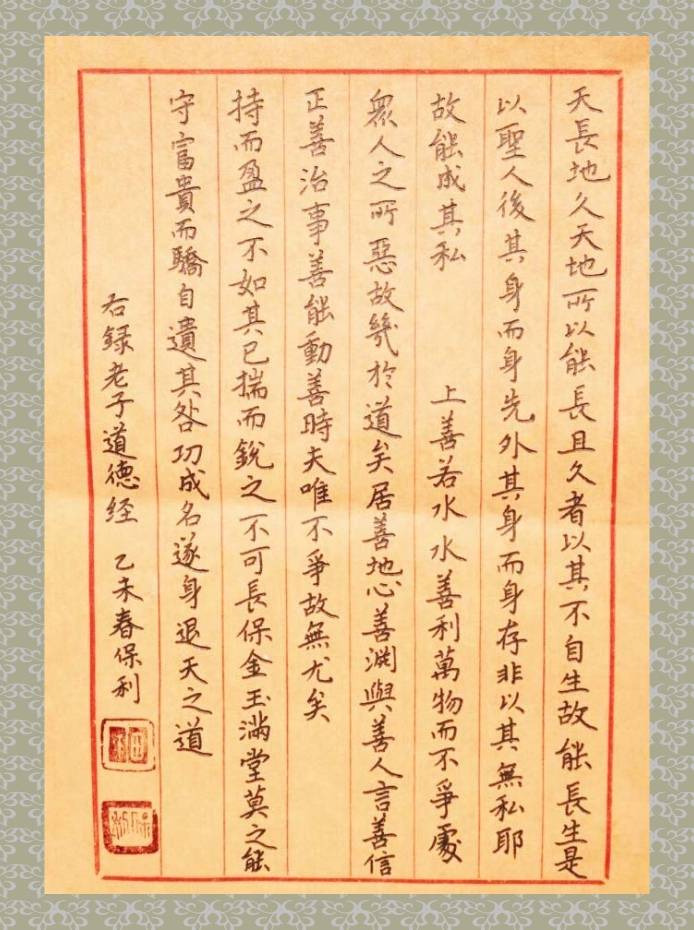 天長地久天地所以能長且久者以其不自生故能長生是
以聖人後其身而身先外其身而身存非以其無私耶
故能成其私　　上善若水水善利萬物而不爭處
衆人之所惡故幾於道矣居善地心善淵與善人言善信
正善治事善能動善時夫唯不爭故無尤矣
持而盈之不如其已揣而銳之不可長保金玉滿堂莫之能
守富貴而驕自遺其咎功成名遂身退天之道
右録老子道德经　乙未春保利